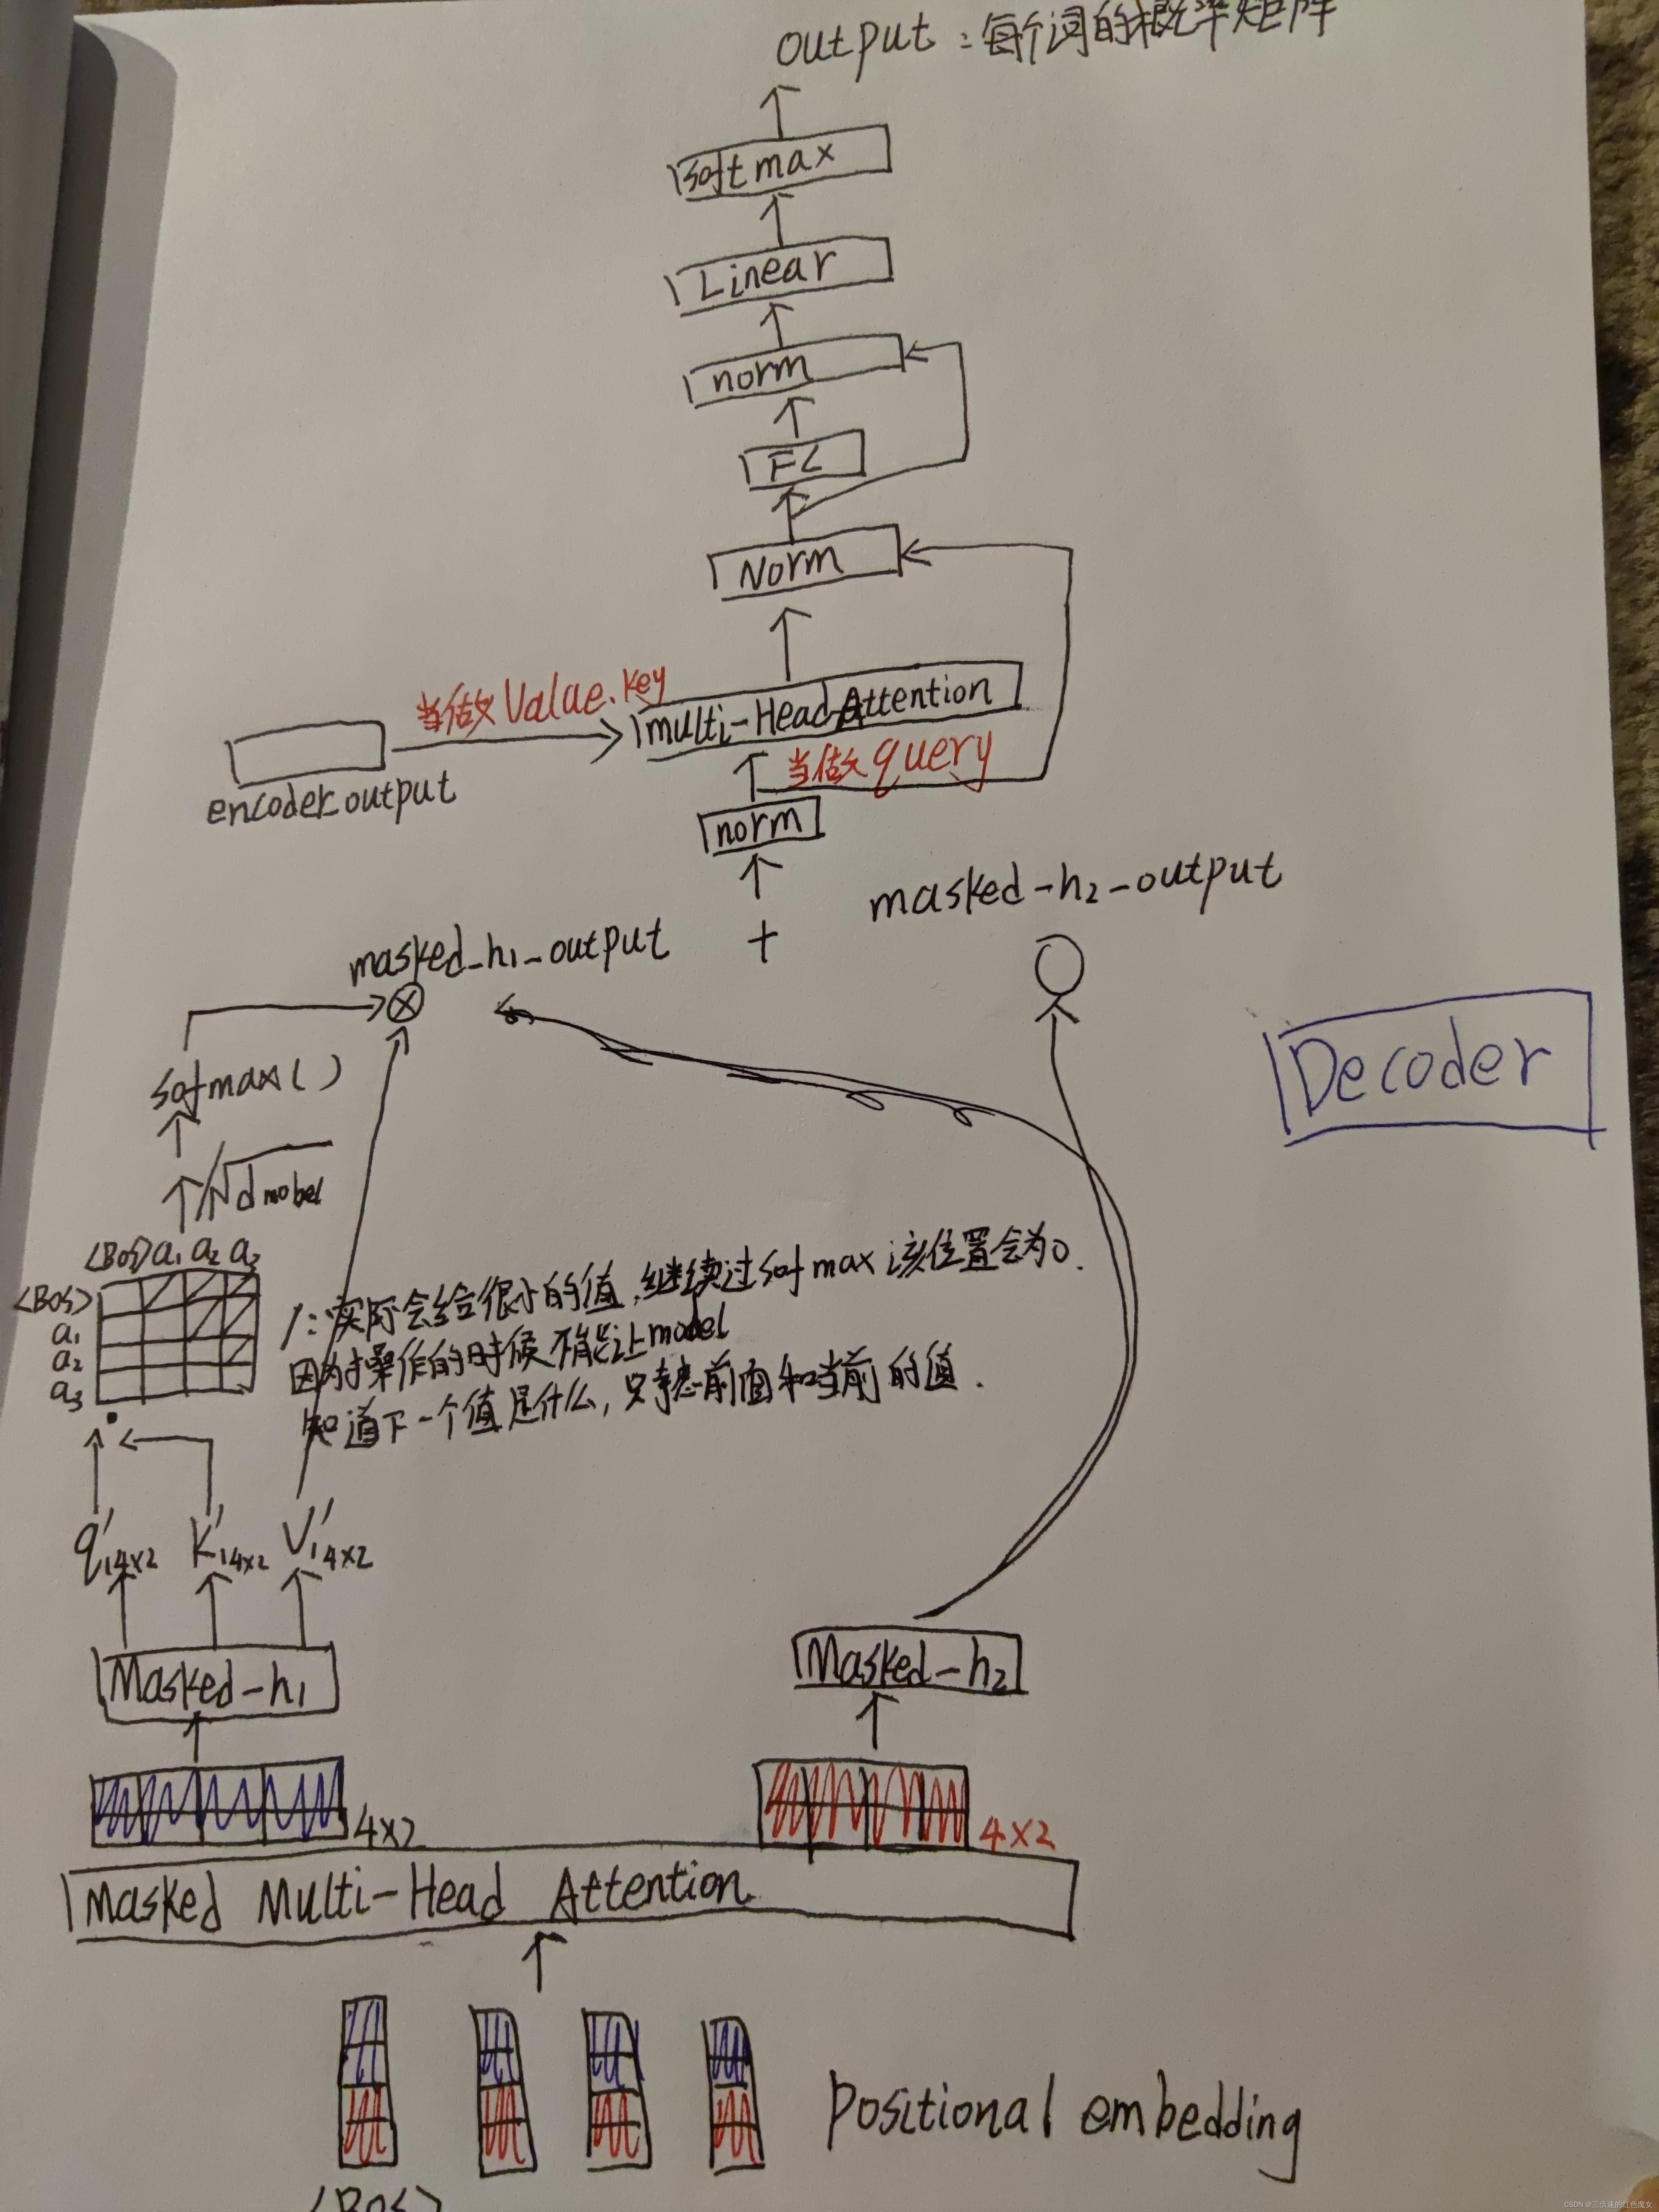 output：每个词的概率矩阵
softmax
Linear
norm
FC
Norm
当做Value.key
multi-Head Attention
当做query
encoder output
norm
masked-h2-output
masked_h1_output
+
softmax()
Decoder
/√dmobel
<BOS> a1 a2 a3
<BOS>
a1
a2
a3
/：实际会给很小的值,继续过sofmax该位置会为0.
因为操作的时候不能让model
知道下一个值是什么,只考虑前面和当前的值.
q'1 4x2 K'1 4x2 V'1 4x2
Masked-h1
Masked-h2
4x2
4x2
Masked Multi-Head Attention
Positional embedding
<BOS>
CSDN @三倍速的红色魔女